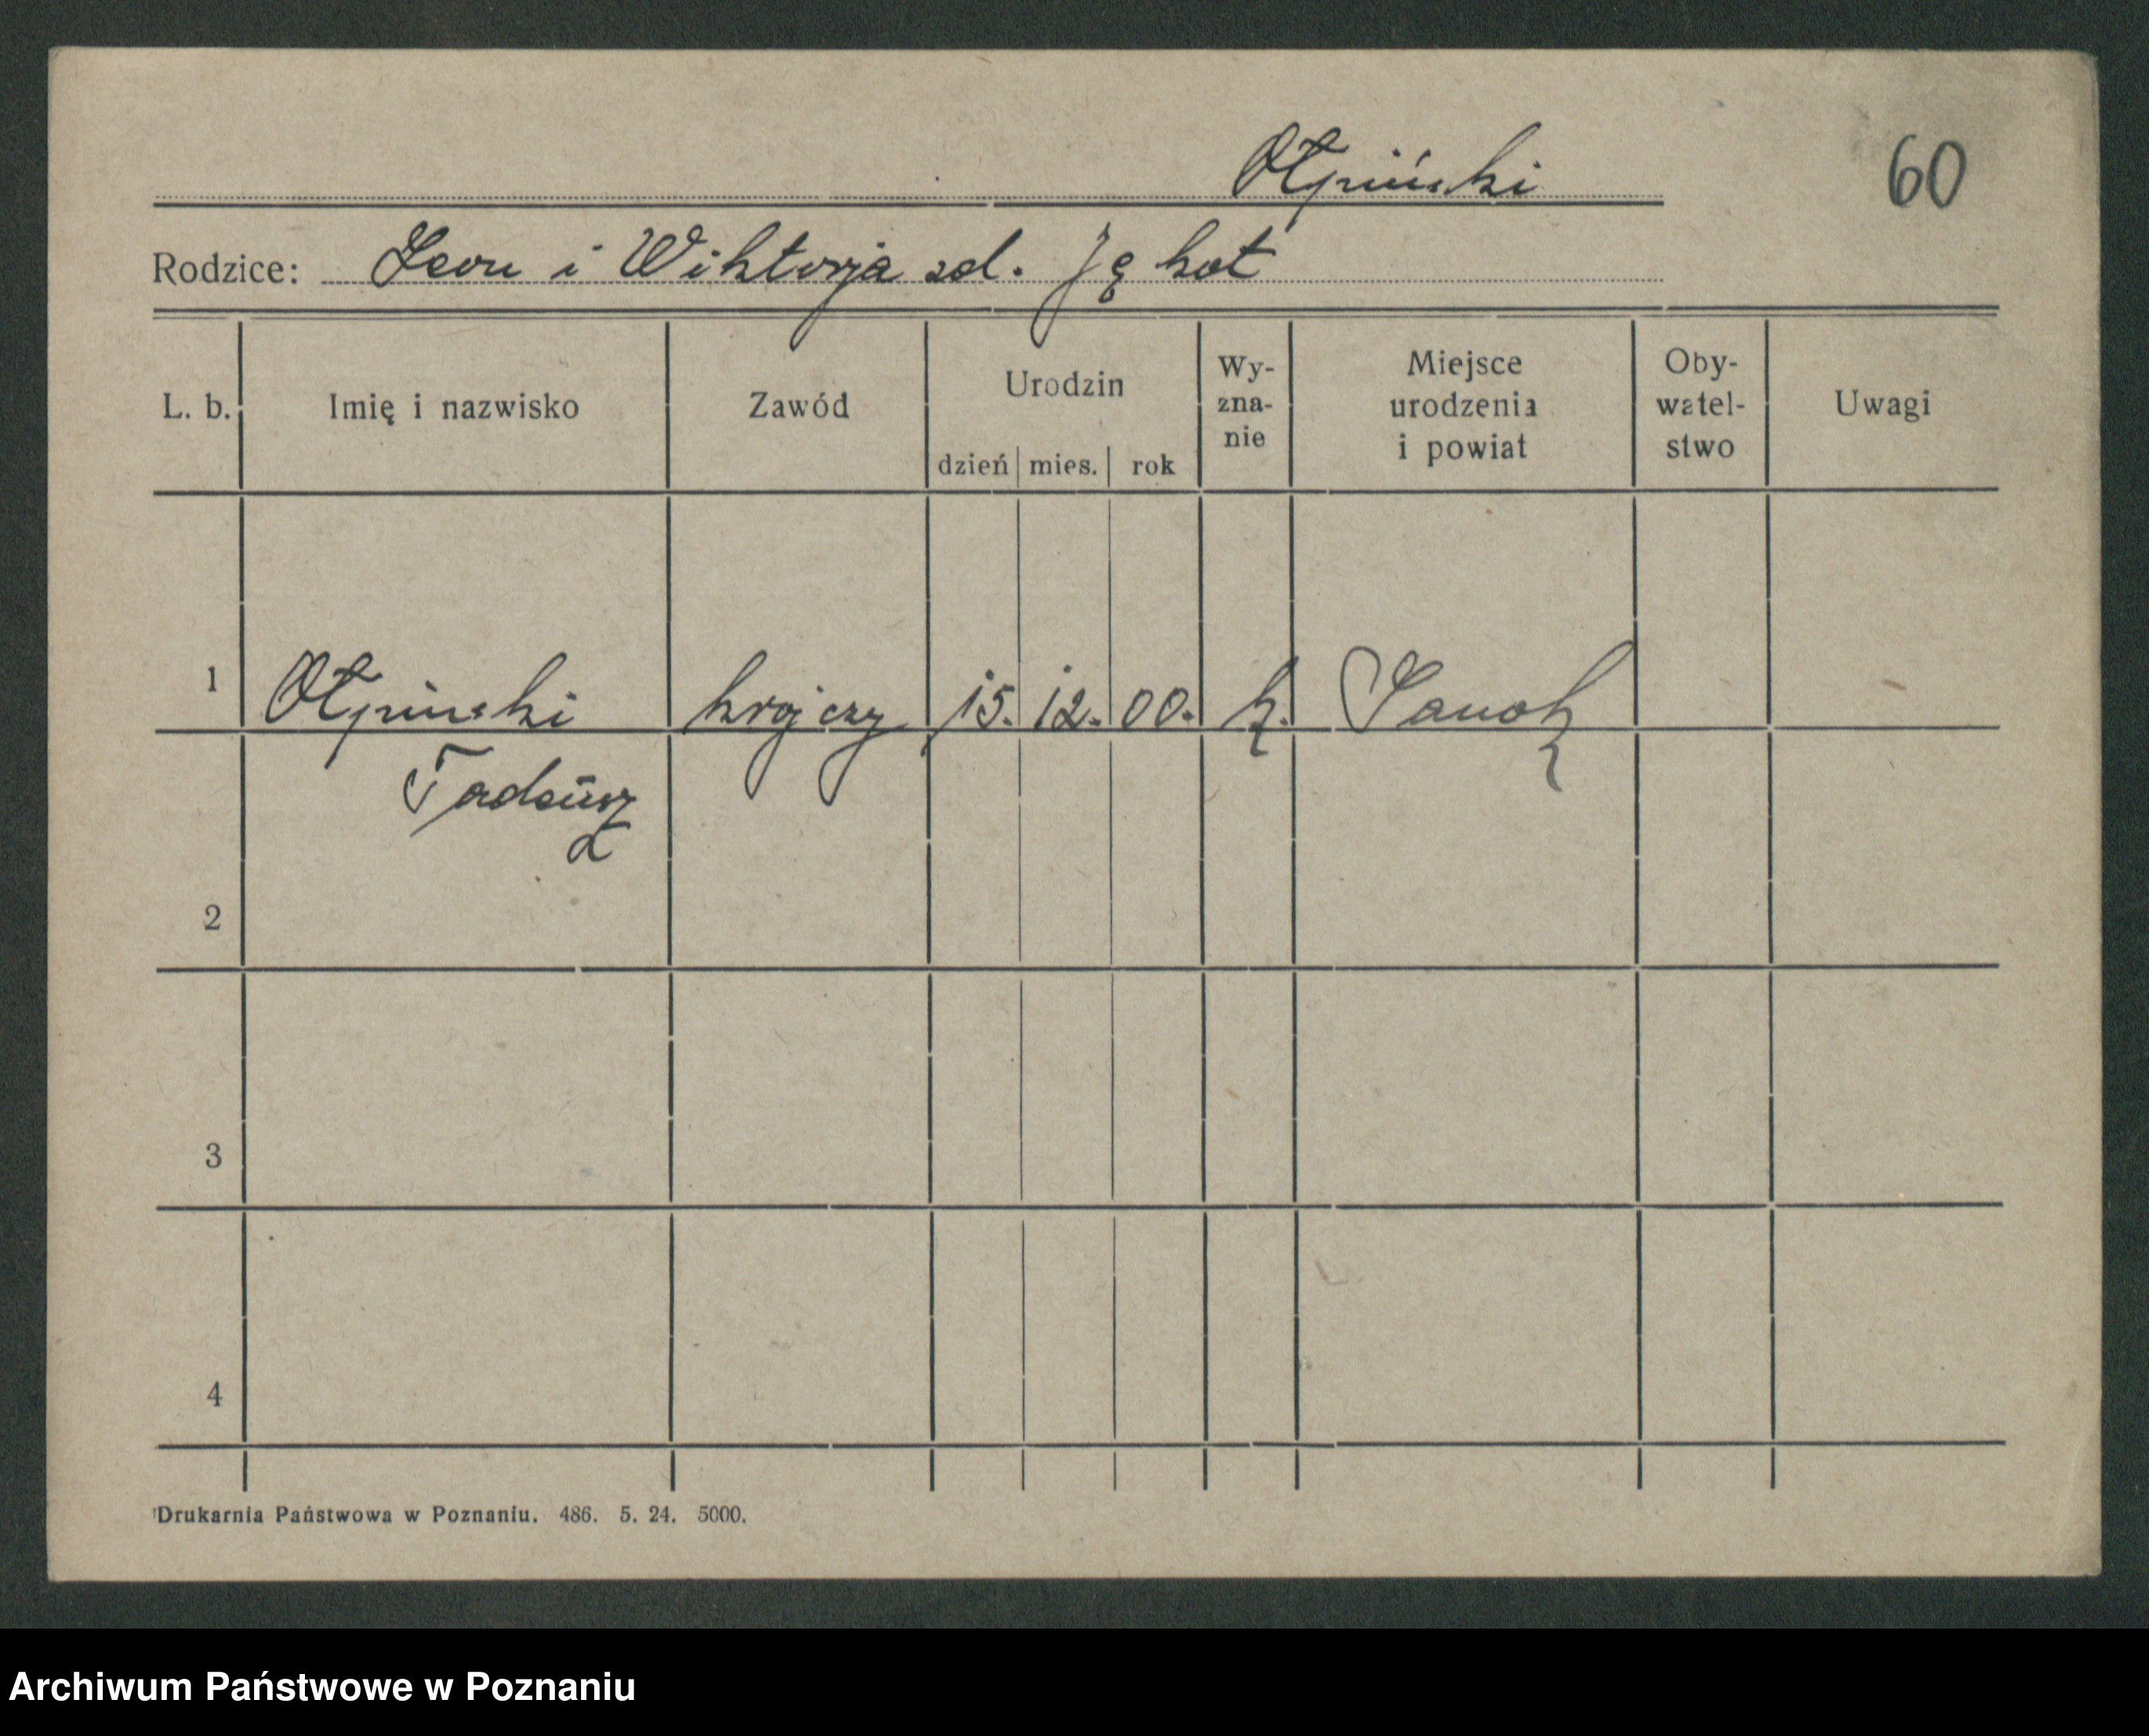 Ołpiński
60
Rodzice: Leon i Wiktorja zd. Jękot
L. b. Imię i nazwisko Zawód Urodzin dzień mies. rok Wy-zna-nie Miejsce urodzenia i powiat Oby-watel-stwo Uwagi
1 Ołpiński krojczy 15. 12. 00. k. Sanok
Tadeusz
2
3
4
Drukarnia Państwowa w Poznaniu. 486. 5. 24. 5000.
Archiwum Państwowe w Poznaniu